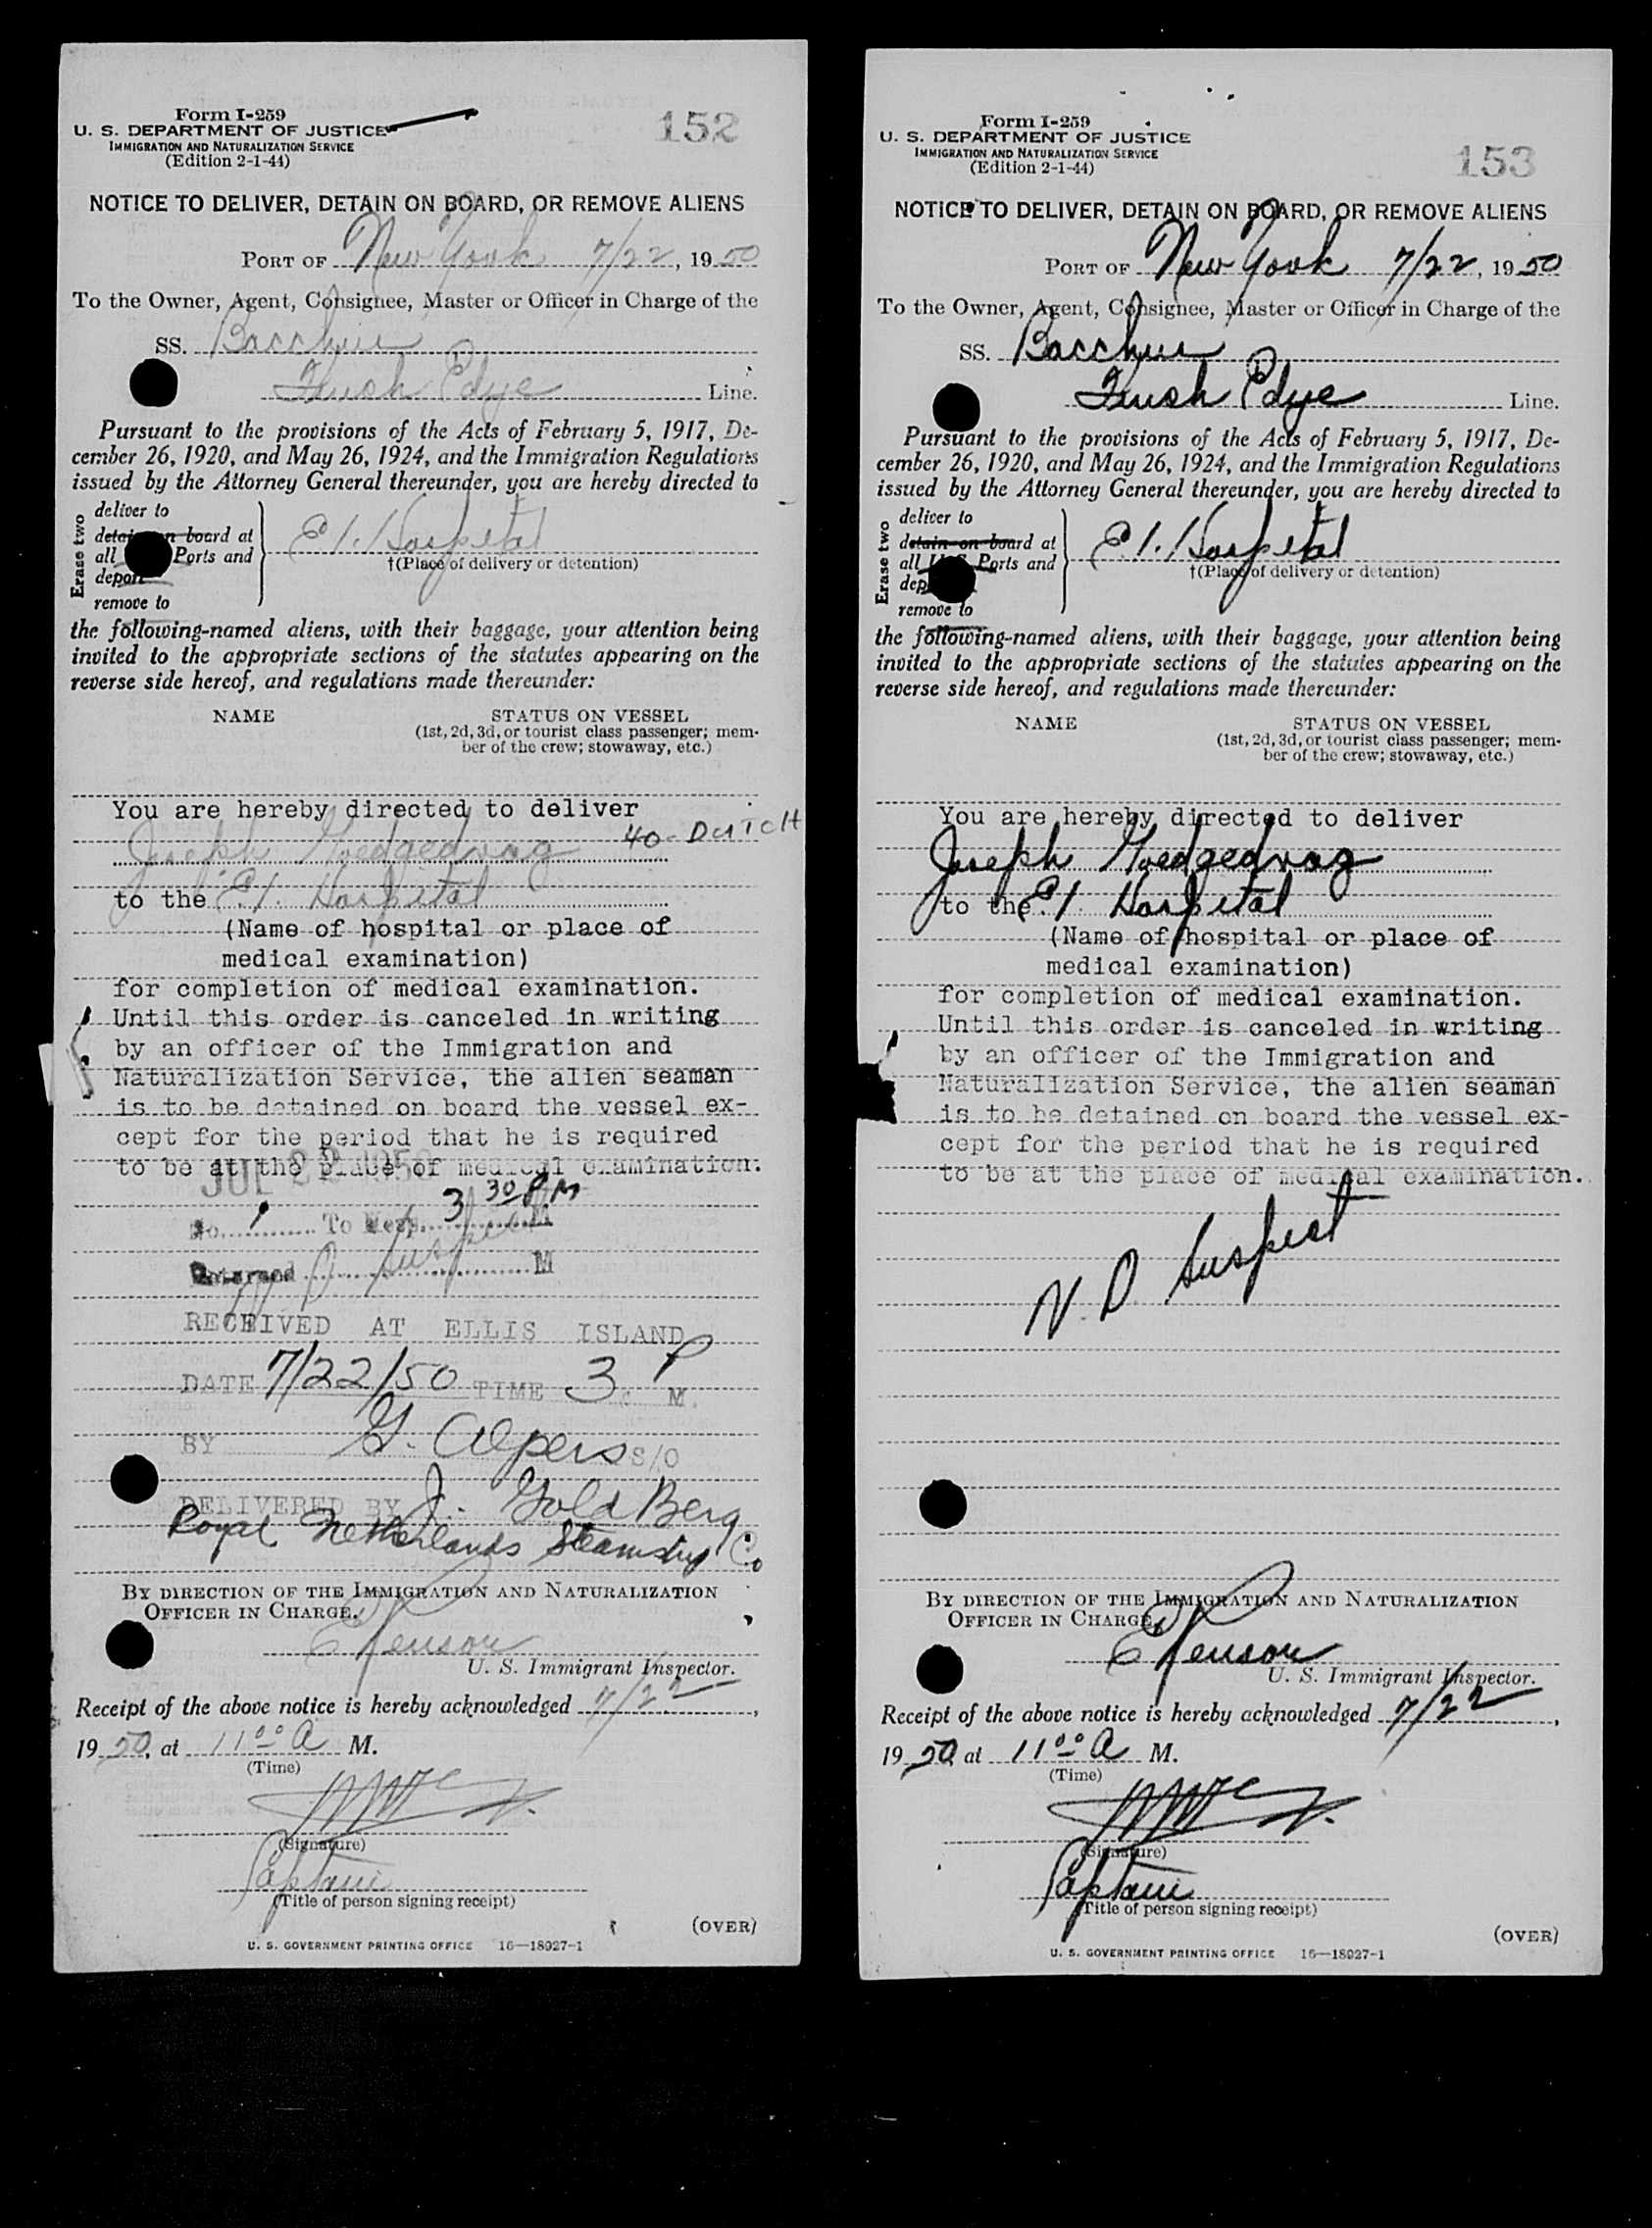 Form I-259
U. S. DEPARTMENT OF JUSTICE
IMMIGRATION AND NATURALIZATION SERVICE
(Edition 2-1-44)
152
NOTICE TO DELIVER, DETAIN ON BOARD, OR REMOVE ALIENS
PORT OF New York 7/22, 1950
To the Owner, Agent, Consignee, Master or Officer in Charge of the
SS. Bacchus
Funch Edye Line.
Pursuant to the provisions of the Acts of February 5, 1917, De-
cember 26, 1920, and May 26, 1924, and the Immigration Regulations
issued by the Attorney General thereunder, you are hereby directed to
Erase two
deliver to
detain on board at
all Ports and
deport
remove to
E I. Hospital
†(Place of delivery or detention)
the following-named aliens, with their baggage, your attention being
invited to the appropriate sections of the statutes appearing on the
reverse side hereof, and regulations made thereunder:
NAME STATUS ON VESSEL
(1st, 2d, 3d, or tourist class passenger; mem-
ber of the crew; stowaway, etc.)
You are hereby directed to deliver
Joseph Goedgedrag 40 - DUTCH
to the E.I. Hospital
(Name of hospital or place of
medical examination)
for completion of medical examination.
Until this order is canceled in writing
by an officer of the Immigration and
Naturalization Service, the alien seaman
is to be detained on board the vessel ex-
cept for the period that he is required
to be at the place of medical examination.
JUL 22 1950
No. 1 To Hosp. 3 30 PM M
Returned M
V. D. Suspect
RECEIVED AT ELLIS ISLAND
DATE 7/22/50 TIME 3 P M.
BY G. Alpers S/O
DELIVERED BY J. GoldBerg
Royal Netherlands Steamship Co
BY DIRECTION OF THE IMMIGRATION AND NATURALIZATION
OFFICER IN CHARGE.
U. S. Immigrant Inspector.
Receipt of the above notice is hereby acknowledged 7/22,
1950, at 11 00 A M.
(Time)
(Signature)
Captain
(Title of person signing receipt)
(OVER)
U. S. GOVERNMENT PRINTING OFFICE 16—18027-1
Form I-259
U. S. DEPARTMENT OF JUSTICE
IMMIGRATION AND NATURALIZATION SERVICE
(Edition 2-1-44)
153
NOTICE TO DELIVER, DETAIN ON BOARD, OR REMOVE ALIENS
PORT OF New York 7/22, 1950
To the Owner, Agent, Consignee, Master or Officer in Charge of the
SS. Bacchus
Funch Edye Line.
Pursuant to the provisions of the Acts of February 5, 1917, De-
cember 26, 1920, and May 26, 1924, and the Immigration Regulations
issued by the Attorney General thereunder, you are hereby directed to
Erase two
deliver to
detain on board at
all U.S. Ports and
dep
remove to
E. I. Hospital
†(Place of delivery or detention)
the following-named aliens, with their baggage, your attention being
invited to the appropriate sections of the statutes appearing on the
reverse side hereof, and regulations made thereunder:
NAME STATUS ON VESSEL
(1st, 2d, 3d, or tourist class passenger; mem-
ber of the crew; stowaway, etc.)
You are hereby directed to deliver
Joseph Goedgedrag
to the E.I. Hospital
(Name of hospital or place of
medical examination)
for completion of medical examination.
Until this order is canceled in writing
by an officer of the Immigration and
Naturalization Service, the alien seaman
is to be detained on board the vessel ex-
cept for the period that he is required
to be at the place of medical examination.
V. D. Suspect
BY DIRECTION OF THE IMMIGRATION AND NATURALIZATION
OFFICER IN CHARGE.
U. S. Immigrant Inspector.
Receipt of the above notice is hereby acknowledged 7/22,
1950 at 11 00 A M.
(Time)
(Signature)
Captain
(Title of person signing receipt)
(OVER)
U. S. GOVERNMENT PRINTING OFFICE 16—18027-1